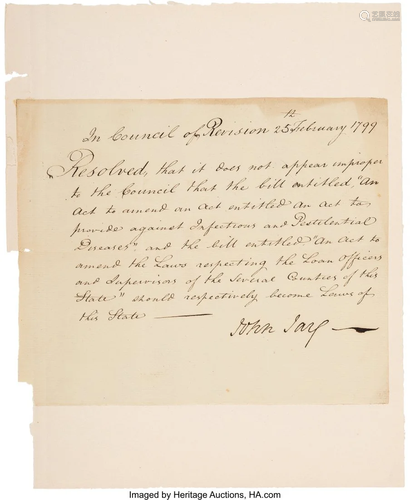 In Council of Revision 25th February 1799
Resolved, that it does not appear improper
to the Council that the bill entitled, "An
Act to amend an Act entitled An Act to
provide against Infectious and Pestilential
Diseases" and the bill entitled "An Act to
amend the Laws respecting the Loan Officers
and Supervisors of the Several Counties of this
State" should respectively become Laws of
this State —
John Jay —
Imaged by Heritage Auctions, HA.com